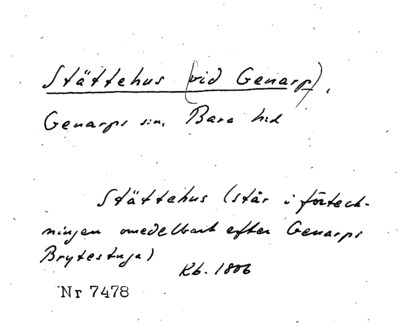 Stättehus (vid Genarp),
Genarps sn, Bara hd
Stättehus (står i förteck-
ningen omedelbart efter Genarps
Brytestuga)
Kb. 1806
Nr 7478